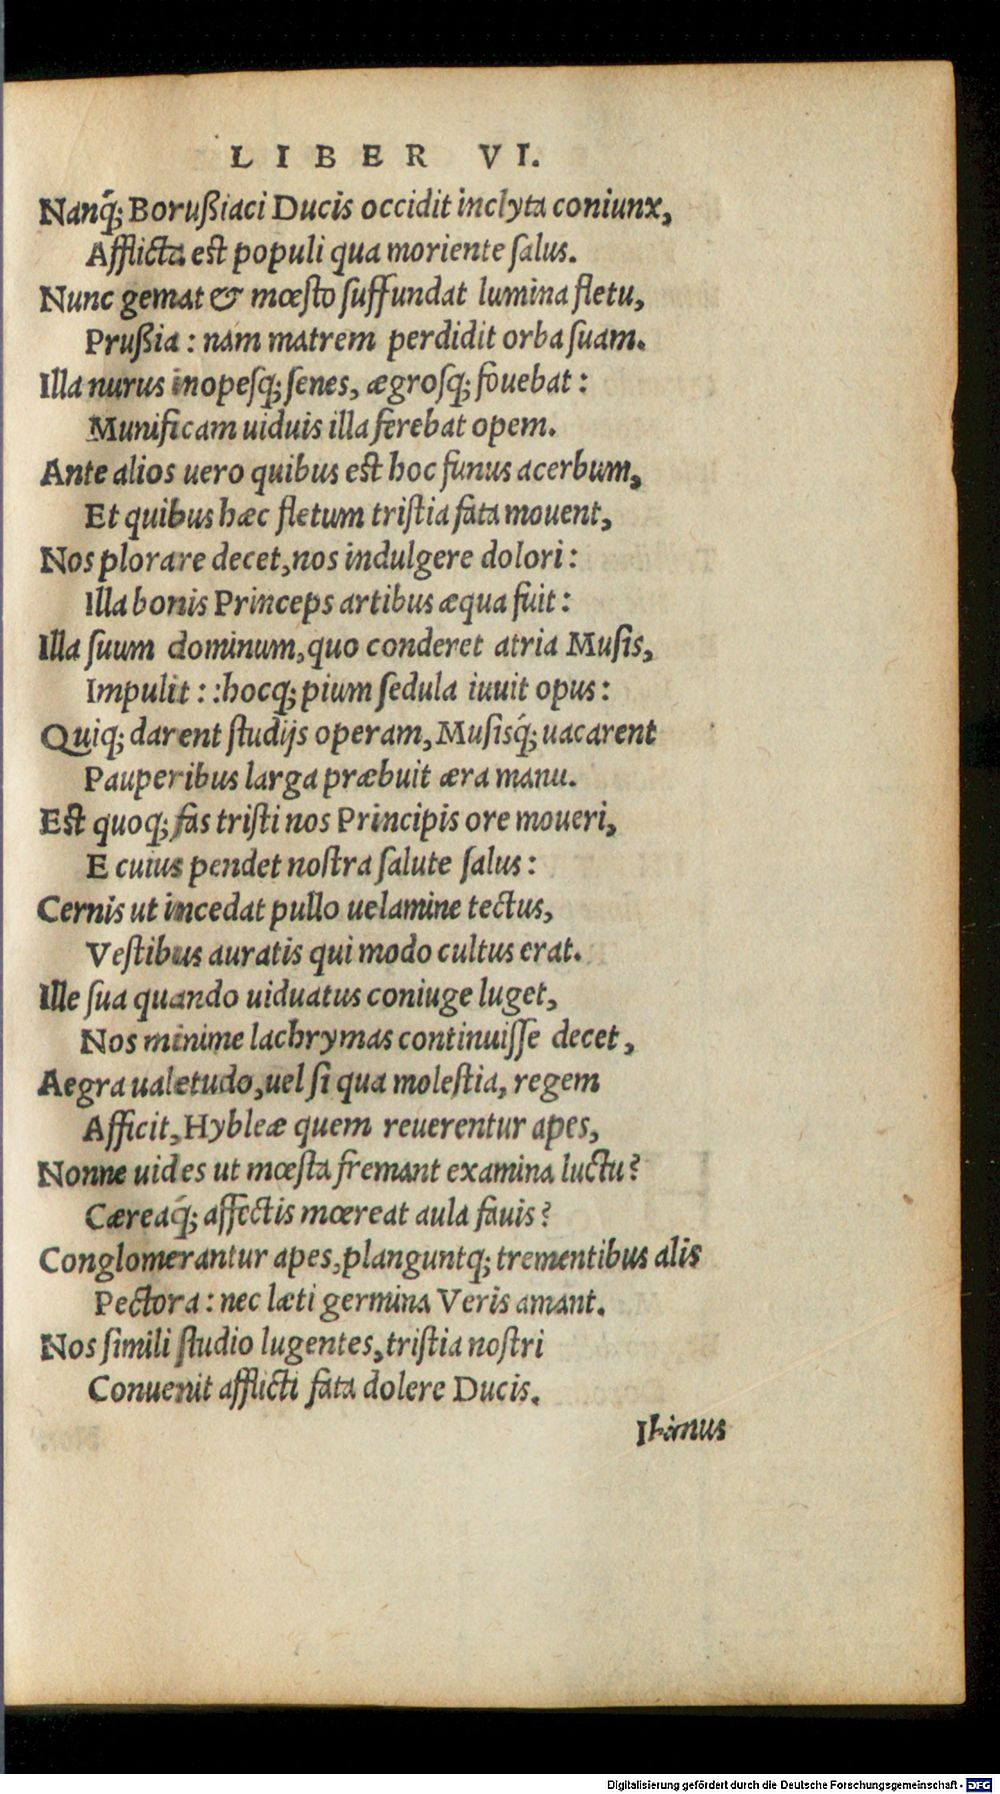 LIBER VI.
Nanq́; Borußiaci Ducis occidit inclyta coniunx,
Afflicta est populi qua moriente ſalus.
Nunc gemat & mœſto ſuffundat lumina fletu,
Prußia : nam matrem perdidit orba ſuam.
Illa nurus inopeſq; ſenes, ægroſq; fouebat :
Munificam uiduis illa ferebat opem.
Ante alios uero quibus est hoc funus acerbum,
Et quibus hæc fletum triſtia fata mouent,
Nos plorare decet, nos indulgere dolori :
Illa bonis Princeps artibus æqua fuit :
Illa ſuum dominum, quo conderet atria Muſis,
Impulit : : hocq; pium ſedula iuuit opus :
Quiq; darent ſtudijs operam, Muſisq́; uacarent
Pauperibus larga præbuit æra manu.
Est quoq; fas triſti nos Principis ore moueri,
E cuius pendet noſtra ſalute ſalus :
Cernis ut incedat pullo uelamine tectus,
Veſtibus auratis qui modo cultus erat.
Ille ſua quando uiduatus coniuge luget,
Nos minime lachrymas continuiſſe decet,
Aegra ualetudo, uel ſi qua moleſtia, regem
Afficit, Hybleæ quem reuerentur apes,
Nonne uides ut mœſta fremant examina luctu?
Cæreaq́; affectis mœreat aula fauis?
Conglomerantur apes, planguntq; trementibus alis
Pectora : nec læti germina Veris amant.
Nos ſimili ſtudio lugentes, triſtia noſtri
Conuenit afflicti fata dolere Ducis.
Ibimus
Digitalisierung gefördert durch die Deutsche Forschungsgemeinschaft - DFG